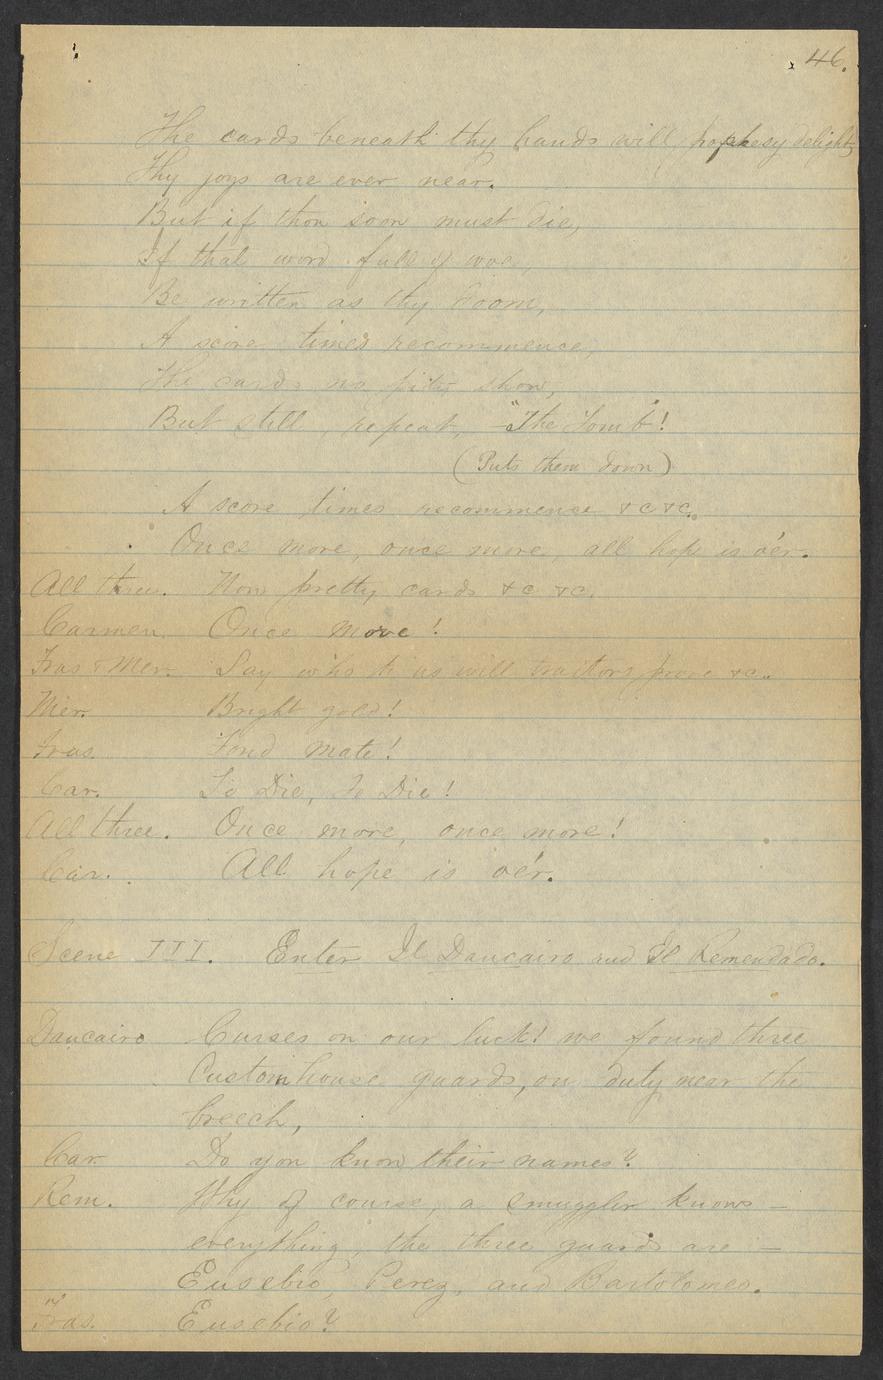 46.
The cards beneath thy hands will prophesy delight
Thy joys are ever near.
But if thou soon must die,
If that word full of woe,
Be written as thy doom,
A score times recommence,
The cards no pity show,
But still, repeat, "The Tomb"!
(Puts them down)
A score times recommence &c &c.
Once more, once more, all hope is o'er.
All three. How pretty cards &c &c.
Carmen. Once more!
Fras & Mer. Say who to us will traitors prove &c..
Mer. Bright gold!
Fras. Fond mate!
Car. To Die, To Die!
All three. Once more, once more!
Car. All hope is o'er.
Scene III. Enter Il Dancairo and Il Remendado.
Dancairo Curses on our luck! we found three
Customhouse guards, on duty near the
breech,
Car. Do you know their names?
Rem. Why of course, a smuggler knows —
everything, the three guards are —
Eusebio, Perez, and Bartolomeo.
Fras. Eusebio?